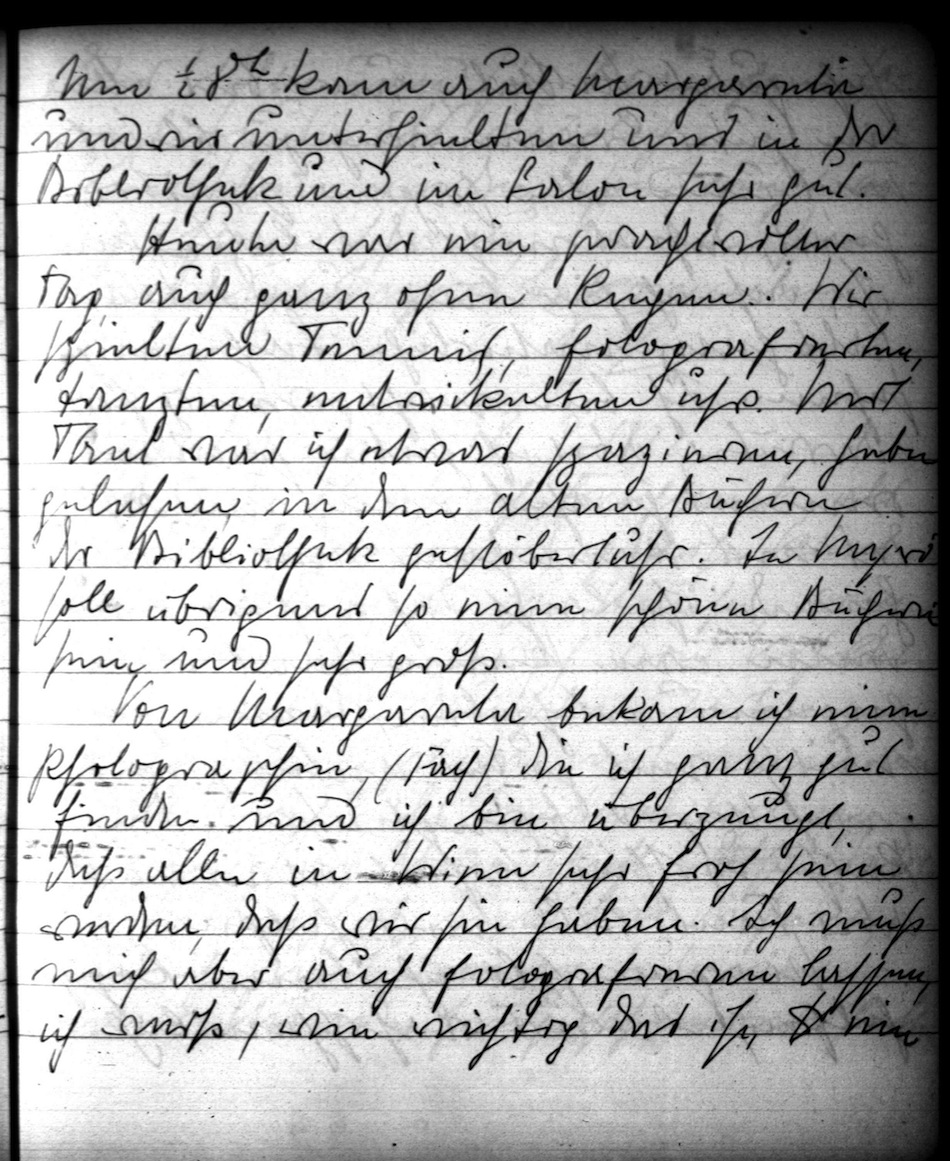 Um ½ 8h kam auch Margarete
und wir unterhielten uns in der
Bibliothek und im Salon sehr gut.
Heute war ein prachtvoller
Tag, auch ganz ohne Regen. Wir
spielten Tennis, fotografierten,
tanzten, entwickelten usw. Mit
war ich etwas spazieren, habe
gelesen, in den alten Büchern
der Bibliothek gestöbert usw. In
soll übrigens so eine schöne Bücherei
sein, und sehr groß.
Von Margarete bekam ich eine
Photographie, die ich ganz gut
finde. und ich bin überzeugt,
daß alle in Wien sehr froh sein
werden, daß wir sie haben. Ich muß
mich aber auch fotografieren lassen,
ich weiß, wie wichtig das ist, & wie